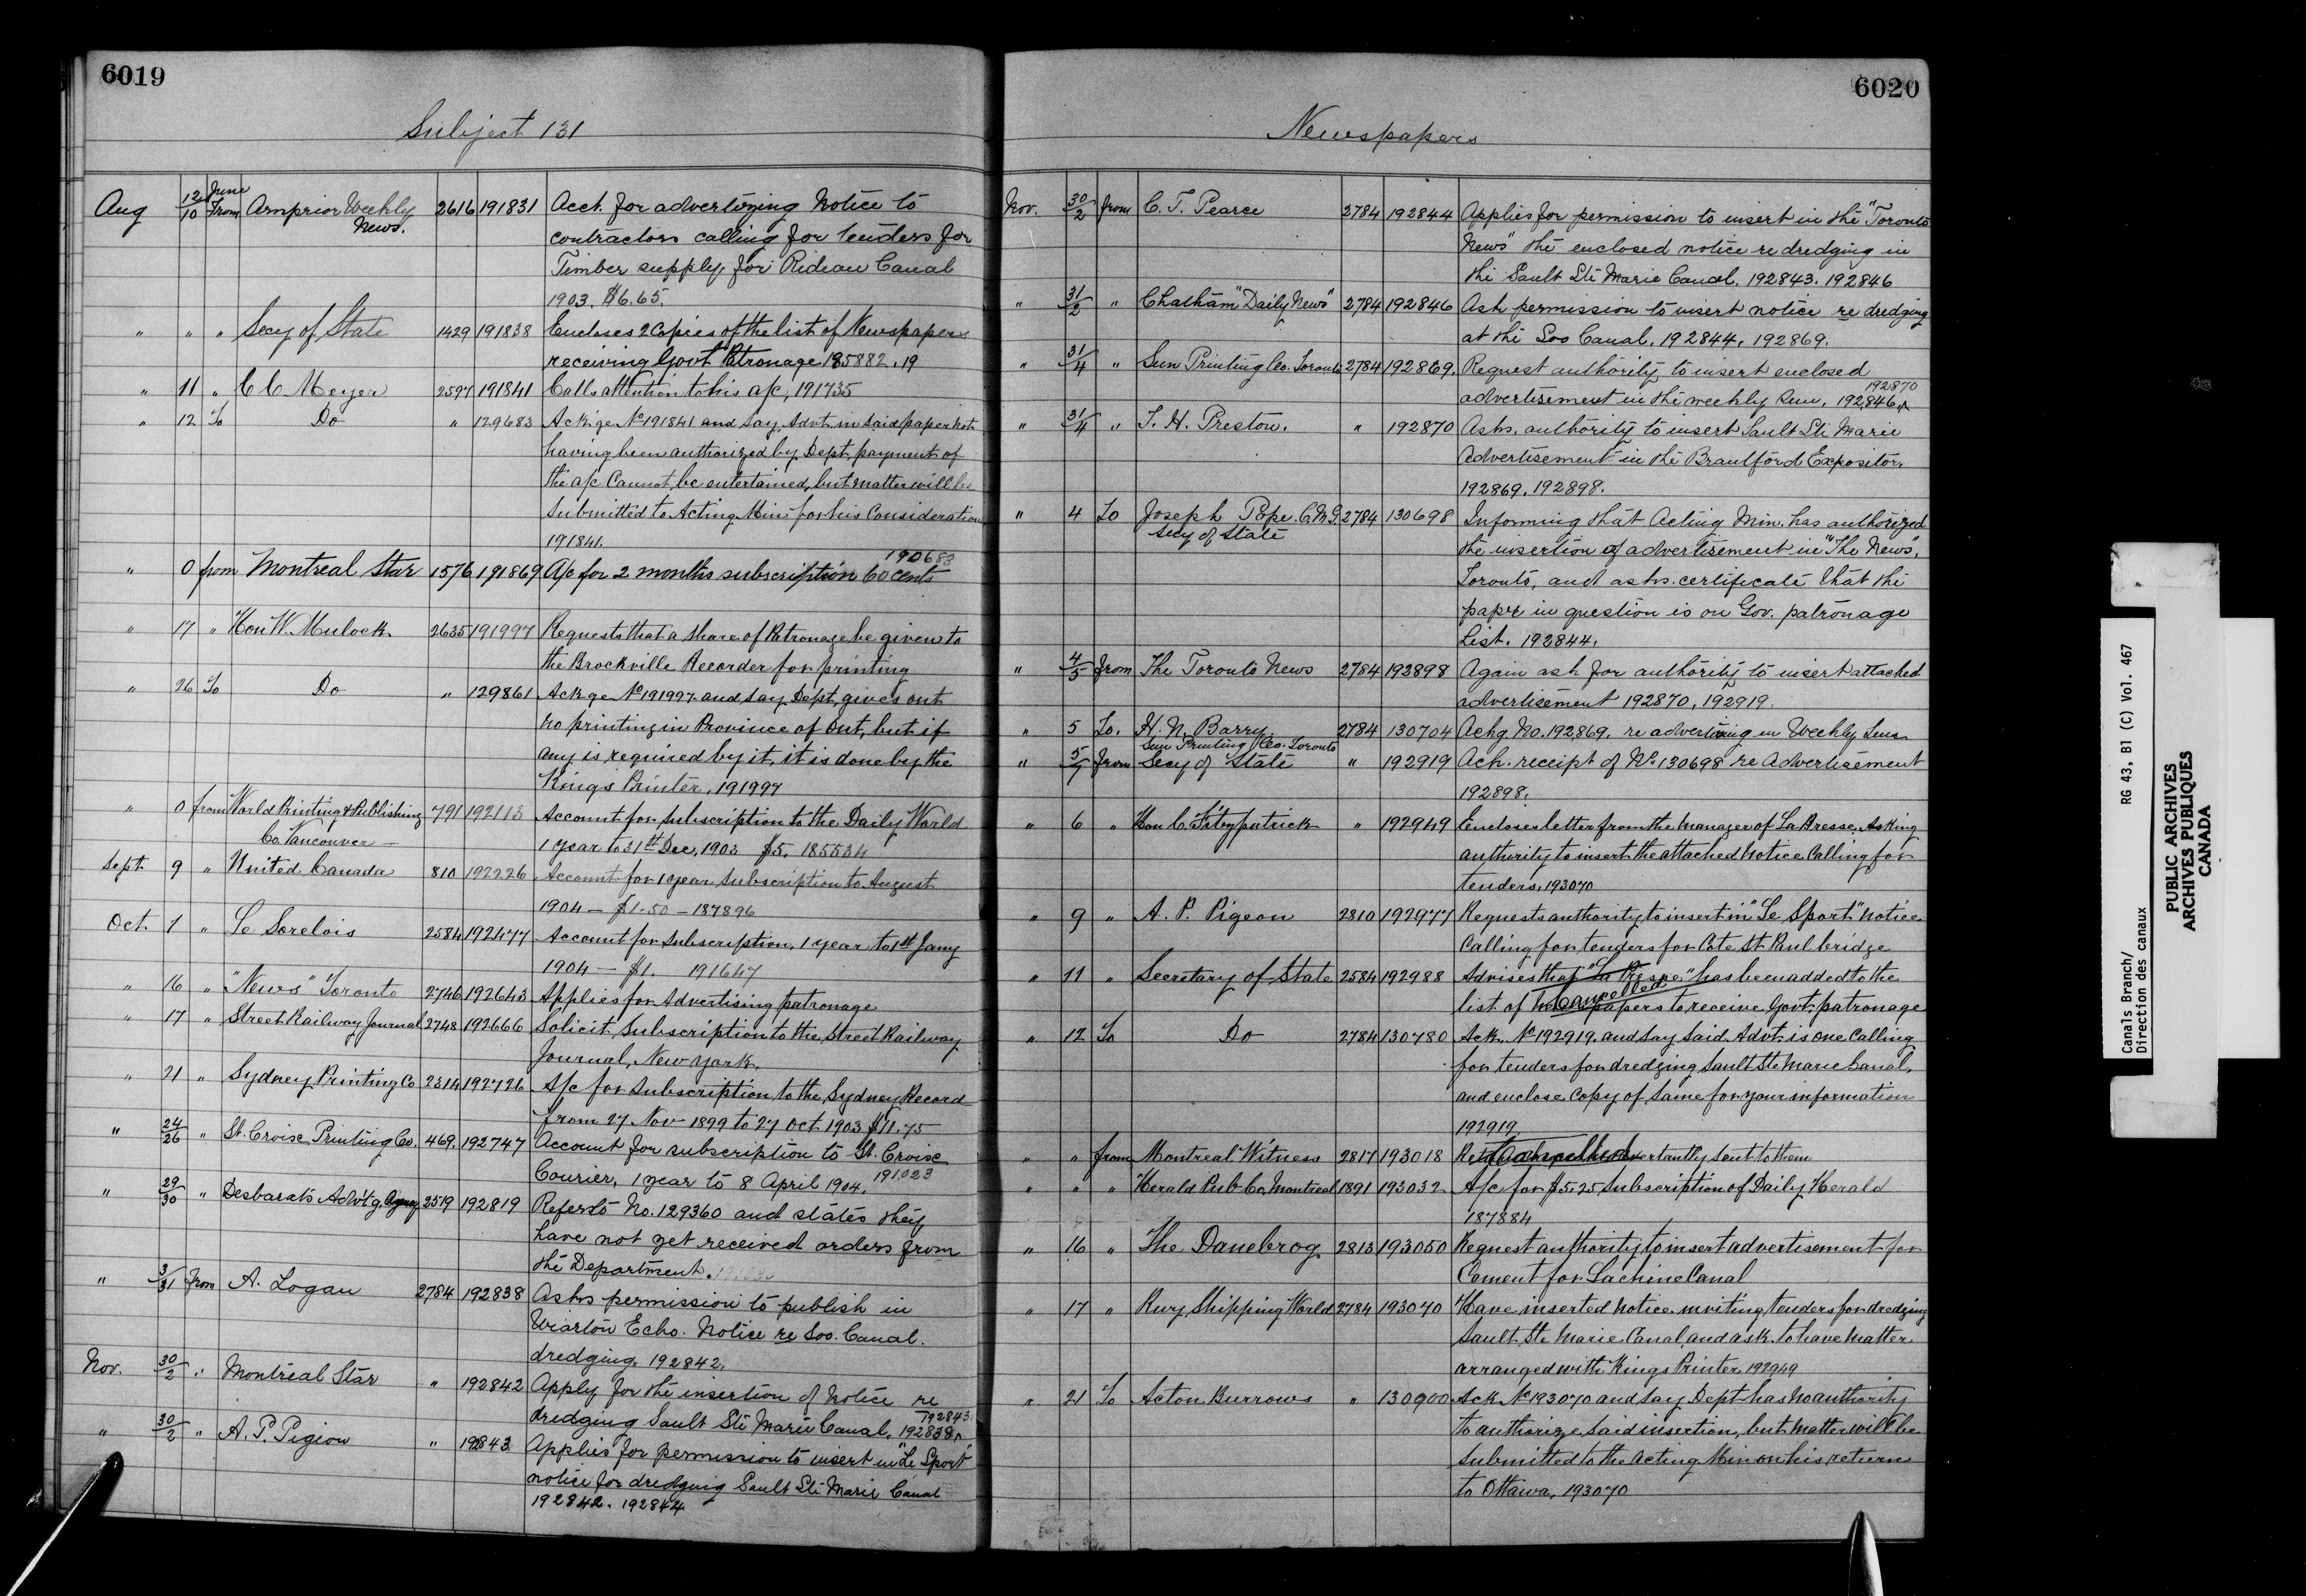 6019
Subject 131
Aug 12/10 June From Arnprior Weekly 2616 191831 Acct. for advertizing Notice to
News. contractors calling for tenders for
Timber supply for Rideau Canal
1903. $6.65.
" " " Secy of State 1429 191838 Encloses 2 Copies of the list of Newspapers
receiving Govt Patronage 185882. 19
" 11 " C C Meyer 2597 191841 Calls attention to his a/c, 191735
" 12 To Do " 129683 Ack'ge No 191841 and say Advt. in said paper not
having been authorized by Dept. payment of
the a/c Cannot be entertained, but matter will be
Submitted to Acting Min for his Consideration
191841.
190680
" 0 from Montreal Star 1576 191869 A/c for 2 months subscription 60 cents
" 17 " Hon W. Mulock 2635 191997 Requests that a share of Patronage be given to
the Brockville Recorder for printing
" 26 To Do " 129861 Ack ge No 191997 and say Dept, gives out
no printing in Province of Ont, but if
any is required by it, it is done by the
Kings Printer, 191997
" 0 from World Printing & Publishing 791 192113 Account for Subscription to the Daily World
Co. Vancouver — 1 year to 31st Dec, 1903 $5. 185534
Sept 9 " United Canada 810 192226 Account for 1 year Subscription to August
1904 — $1.50 — 187896
Oct. 1 " Le Sorelois 2584 192477 Account for Subscription, 1 year to 1st Jany
1904 — $1. 191647
" 16 " "News" Toronto 2746 192643 Applies for Advertising patronage
" 17 " Street Railway Journal 2748 192666 Solicit Subscription to the Street Railway
Journal, New York.
" 21 " Sydney Printing Co 2314 192726 A/c for Subscription to the Sydney Record
from 27 Nov 1899 to 27 Oct. 1903 $11.75
" 24/26 " St. Croix Printing Co. 469. 192747 Account for subscription to St. Croix
Courier, 1 year to 8 April 1904. 191.023
" 29/30 " Desbarats Advt'g. Agncy 2519 192819 Refers to No. 129360 and states they
have not yet received orders from
the Department.
" 3/31 from A. Logan 2784 192838 Asks permission to publish in
Wiarton Echo. Notice re Soo. Canal.
dredging. 192842.
Nov. 30/2 " Montreal Star " 192842 Apply for the insertion of Notice re
dredging Sault Ste Marie Canal, 192838 192843
" 30/2 " A. P. Pigion " 192843 Applies for permission to insert in "Le Sport"
notice for dredging Sault Ste Marie Canal
192842. 192844
6020
Newspapers
Nov. 30/2 from C. T. Pearce 2784 192844 Applies for permission to insert in the "Toronto
News" the enclosed notice re dredging in
the Sault Ste Marie Canal, 192843. 192846
" 31/2 " Chatham "Daily News" 2784 192846 Ask permission to insert notice re dredging
at the Soo Canal, 192844, 192869.
" 31/4 " Sun Printing Co. Toronto 2784 192869. Request authority to insert enclosed
advertisement in the weekly Sun, 192,846, 192870
" 31/4 " T. H. Preston. " 192870 Asks. authority to insert Sault Ste Marie
Advertisement in the Brantford Expositor.
192869. 192898.
" 4 To Joseph Pope. C.M.G. 2784 130698 Informing that Acting Min. has authorized
Secy of State the insertion of advertisement in "The News",
Toronto, and asks. certificate that the
paper in question is on Gov. patronage
List. 192844.
" 4/5 from The Toronto News 2784 192898 Again ask for authority to insert attached
advertisement 192870, 192919.
" 5 To. H. N. Barry. 2784 130704 Ackg No. 192,869. re advertising in Weekly Sun
Sun Printing Co. Toronto
" 5/7 from Secy of State " 192919 Ack. receipt of No. 130698 re Advertisement
192898.
" 6 " Hon C. Fitzpatrick " 192949 Encloses letter from the manager of La Presse, Asking
authority to insert the attached Notice Calling for
tenders, 193070
" 9 " A. P. Pigeon 2810 192977 Requests authority to insert in "Le Sport" notice
Calling for tenders for Cote St. Paul bridge
" 11 " Secretary of State 2584 192988 Advises that "La Presse" has been added to the
list of newspapers to receive Govt. patronage
Cancelled
" 12 To Do 2784 130780 Ack. No 192919. and say said Advt. is one Calling
for tenders for dredging Sault Ste Marie Canal,
and enclose Copy of same for your information
192919.
" " from Montreal Witness 2817 193018 inadvertantly sent to them
Cancelled
" " " Herald Pub Co, Montreal 1891 193032 A/c for $5.25 Subscription of Daily Herald
187884
" 16 " The Danebrog 2813 193050 Request authority to insert advertisement for
Cement for Lachine Canal
" 17 " Rwy Shipping World 2784 193070 Have inserted Notice inviting tenders for dredging
Sault Ste Marie Canal, and ask to have matter
arranged with Kings Printer. 192949
" 21 To Acton Burrows " 130900 Ack No 193070 and say Dept has no authority
to authorize said insertion, but matter will be
submitted to the Acting Min on his return
to Ottawa, 193070
Canals Branch/ RG 43, B1 (C) Vol. 467
Direction des canaux
PUBLIC ARCHIVES
ARCHIVES PUBLIQUES
CANADA